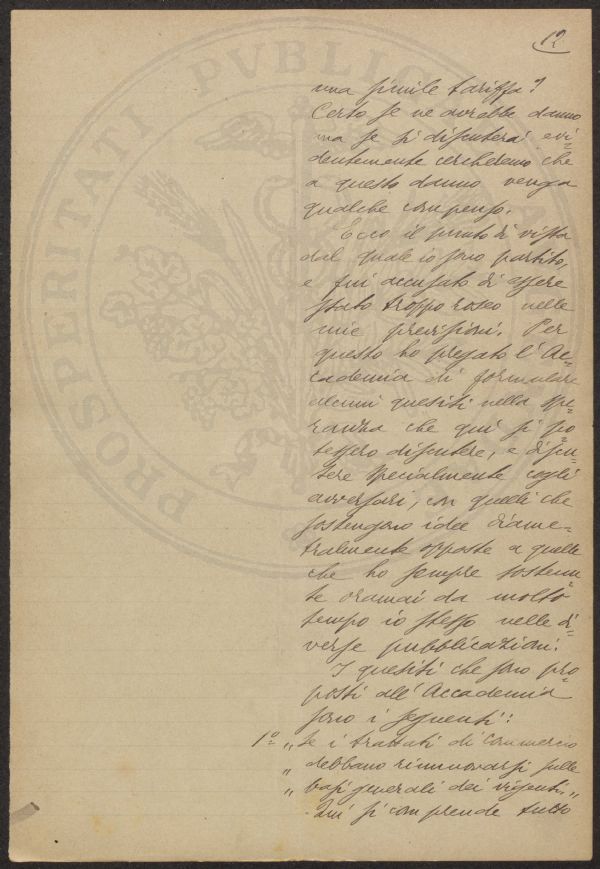 12
una simile tariffa?
Certo se ne avrebbe danno
ma se si discuterà evi-
dentemente cercheremo che
a questo danno venga
qualche compenso.
Ecco il punto di vista
dal quale io sono partito,
e fui accusato di essere
stato troppo roseo nelle
mie previsioni. Per
questo ho pregato l'Ac-
cademia di formulare
alcuni quesiti nella spe-
ranza che qui si po-
tessero discutere, e discu-
tere specialmente cogli
avversari, con quelli che
sostengono idee diame-
tralmente opposte a quelle
che ho sempre sostenu-
te oramai da molto
tempo io stesso nelle di-
verse pubblicazioni.
I quesiti che sono pro-
posti all'Accademia
sono i seguenti:
1º „Se i trattati di commercio
„ debbano rinnovarsi sulle
„ basi generali dei vigenti.„
Qui si comprende tutto
PROSPERITATI PVBLIC